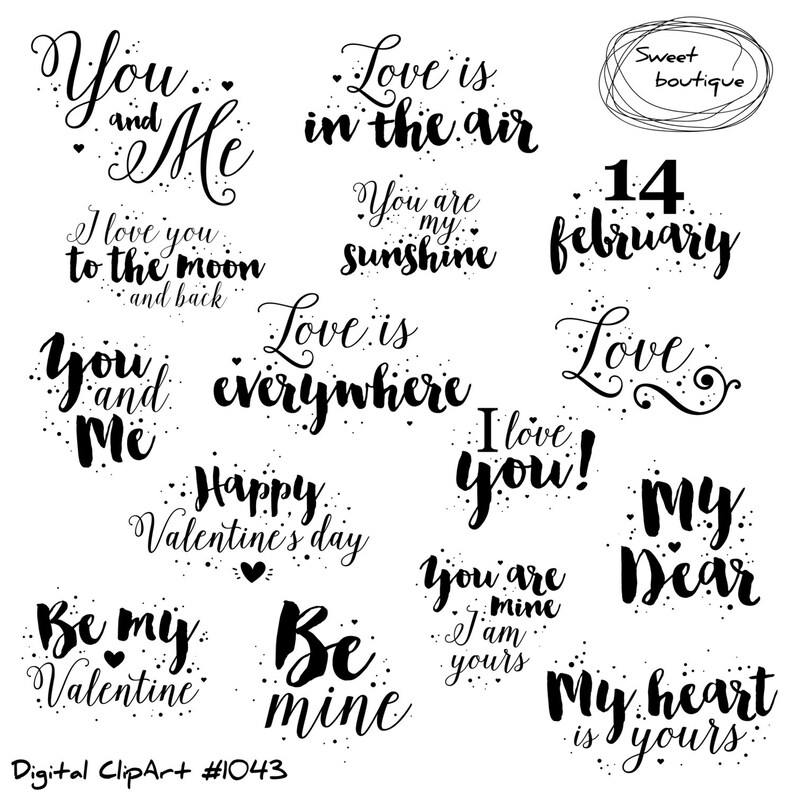 You
and
Me
Love is
in the air
Sweet
boutique
14
february
I love you
to the moon
and back
You are
my
sunshine
Love is
everywhere
Love
You
and
Me
I love
you!
Happy
Valentine's day
My
Dear
You are
mine
I am
yours
Be my
Valentine
Be
mine
My heart
is yours
Digital ClipArt #1043